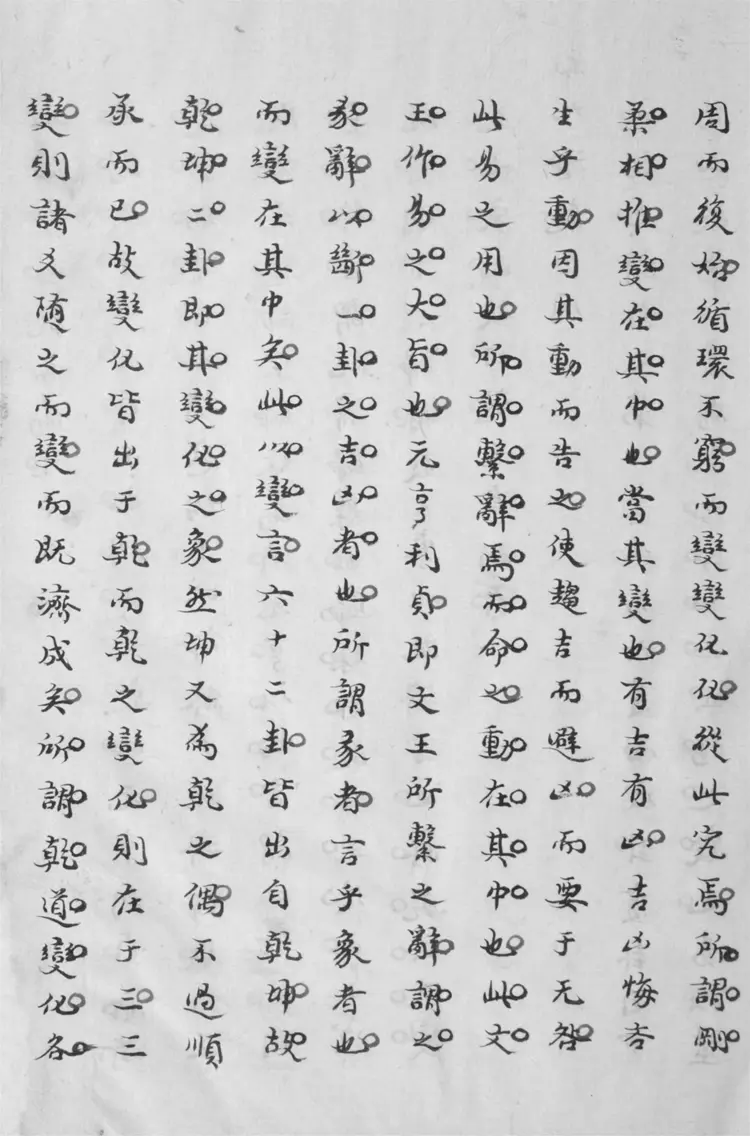 周而復始循環不窮而變變化化從此究焉所謂剛
柔相推變在其中也當其變也有吉有凶吉凶悔吝
生乎動因其動而告之使趨吉而避凶而要于无咎
此易之用也所謂繫辭焉而命之動在其中也此文
王作易之大旨也元亨利貞即文王所繫之辭謂之
彖辭以斷一卦之吉凶者也所謂彖者言乎象者也
而變在其中矣此以變言六十二卦皆出自乾坤故
乾坤二卦即其變化之象然坤又為乾之偶不過順
承而已故變化皆出于乾而乾之變化則在于三三
變則諸爻隨之而變而既濟成矣所謂乾道變化各